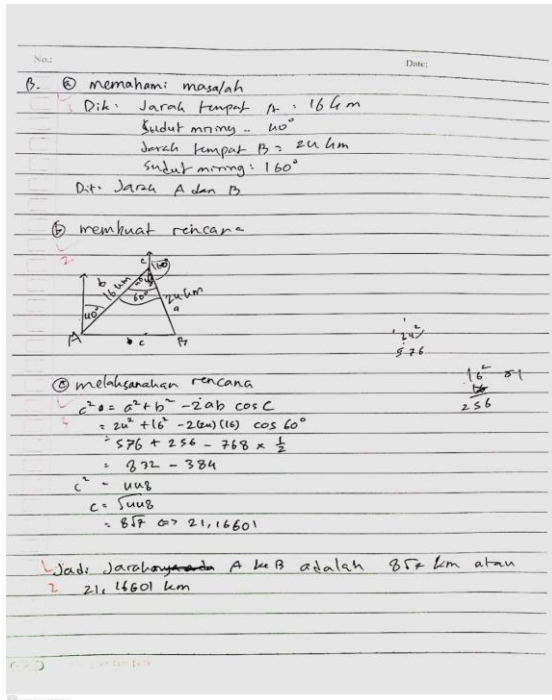 No.:
Date:
B. ⓐ memahami masalah
Dik: Jarak tempat A : 16 km
Sudut miring .. 40°
Jarak tempat B = 24 km
Sudut miring : 160°
Dit: Jarak A dan B
ⓑ membuat rencana
2
C 160°
b 16 km 60° 24 km a
40°
A c B
24²
576
ⓒ melaksanakan rencana
16²
256
c² = a² + b² - 2ab cos C
3
= 24² + 16² - 2(24)(16) cos 60°
= 576 + 256 - 768 × ½
= 832 - 384
c² = 448
c = √448
= 8√7 ⇔ 21,16601
Jadi Jarak A ke B adalah 8√7 km atau
2 21,16601 km